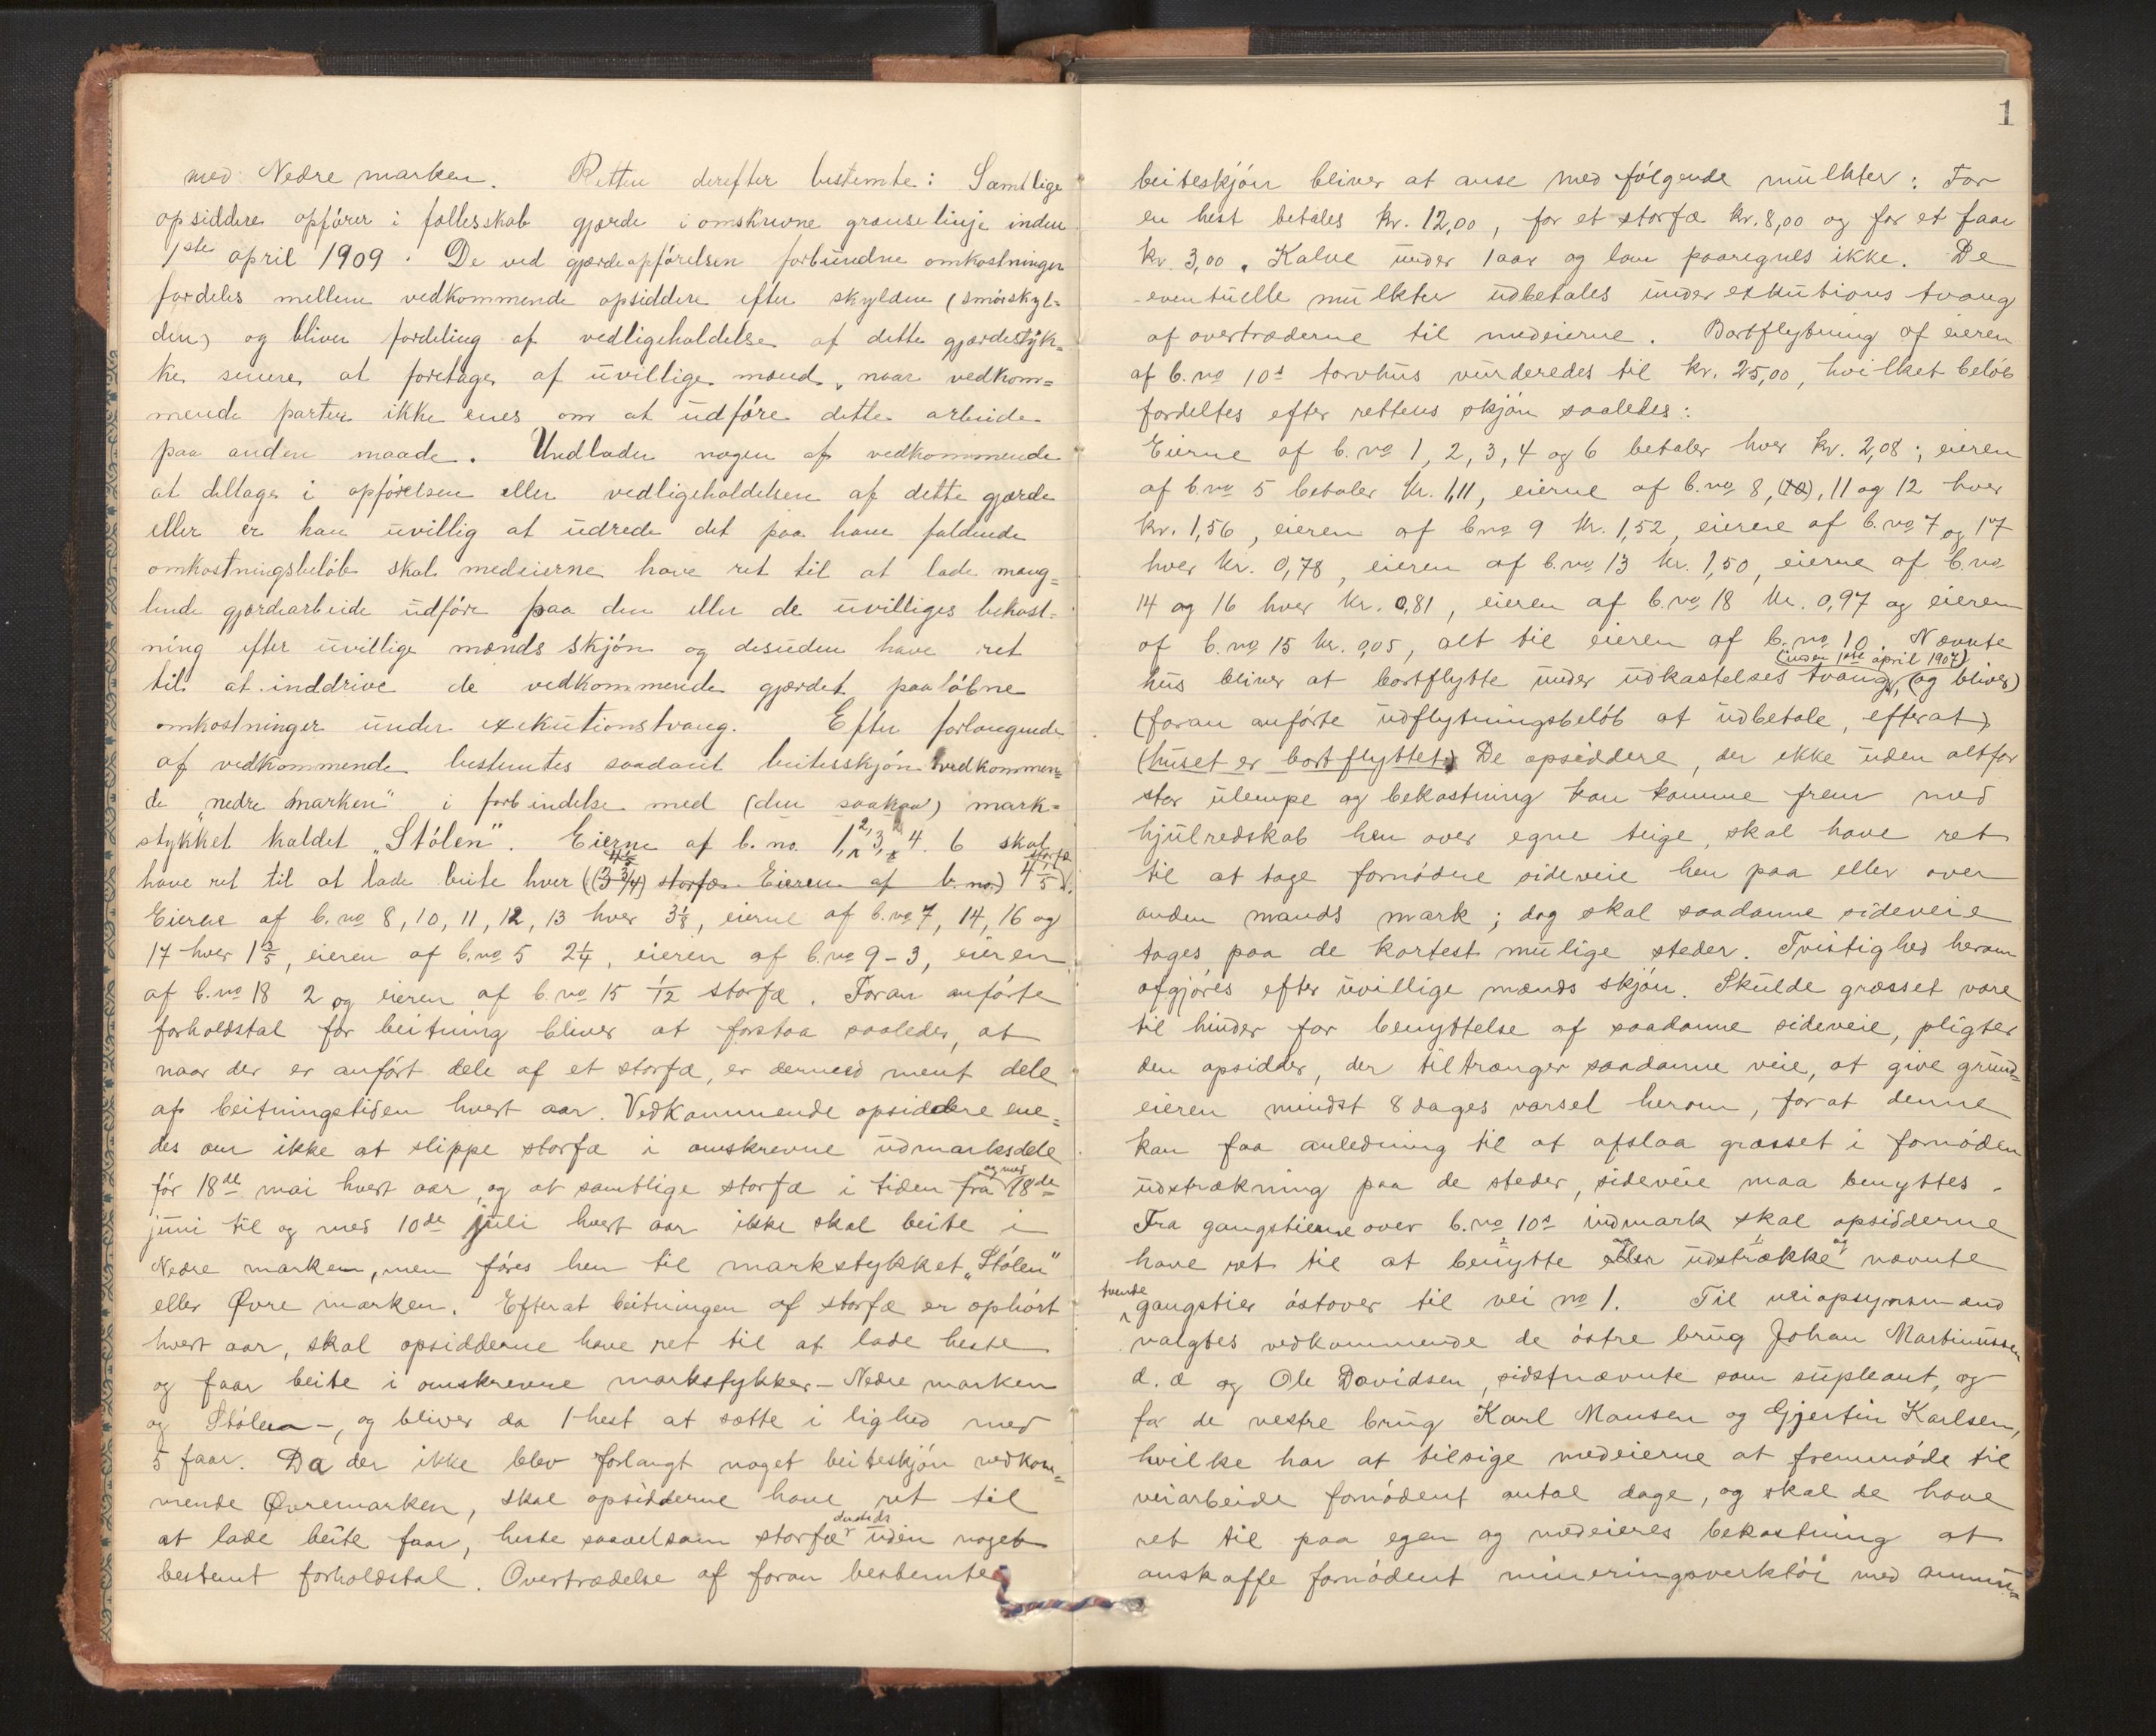 med Nedre marken. Retten derefter bestemte: Samtlige
opsiddere opfører i fællesskab gjærde i omskrevne grænselinje inden
1ste april 1909. De ved gjærdeopførelsen forbundne omkostninger
fordeles mellem vedkommende opsiddere efter skylden (smørskyl=
den) og bliver fordeling af vedligeholdelse af dette gjærdestyk=
ke senere at foretage af uvillige mænd, naar vedkom=
mende parter ikke enes om at udføre dette arbeide
paa anden maade. Undlader nogen af vedkommende
at deltage i opførelsen eller vedligeholdelsen af dette gjærde
eller er han uvillig at udrede det paa ham faldende
omkostningsbeløb skal medeierne have ret til at lade mang=
lende gjærdearbeide udføre paa den eller de uvilliges bekost=
ning efter uvillige mænds skjøn og desuden have ret
til at inddrive de vedkommende gjærdet paaløbne
omkostninger under exekutionstvang. Efter forlangende
af vedkommende bestemtes saadant beitesskjøn vedkommen=
de "nedre marken" i forbindelse med (den saakaa) mark=
stykket kaldet "Stølen". Eierne af b. no. 1, 2, 3, 4. 6 skal
have ret til at lade beite hver ((3 3/4) storfæ Eieren af b. no.) 4 4/5 storfæ.
Eierne af b. no 8, 10, 11, 12, 13 hver 3 1/8, eierne af b. no 7, 14, 16 og
17 hver 1 3/5, eieren af b. no 5 2 1/4, eieren af b. no 9 - 3, eieren
af b. no 18 2 og eieren af b. no 15 1/12 storfæ. Foran anførte
forholdstal for beitning bliver at forstaa saaledes, at
naar der er anført dele af et storfæ, er dermed ment dele
af beitningstiden hvert aar. Vedkommende opsiddere ene=
des om ikke at slippe storfæ i omskrevne udmarksdele
før 18de mai hvert aar, og at samtlige storfæ i tiden fra og med 18de
juni til og med 10de juli hvert aar ikke skal beite i
Nedre marken, men føres hen til markstykket "Stølen"
eller Øvre marken. Efterat beitningen af storfæ er ophørt
hvert aar, skal opsidderne have ret til at lade heste
og faar beite i omskrevne markstykker - Nedre marken
og Stølen -, og bliver da 1 hest at sætte i lighed med
5 faar. Da der ikke blev forlangt noget beiteskjøn vedkom=
mende Øvremarken, skal opsidderne have ret til
at lade beite faar, heste saavelsom storfæ dersteds uden noget
bestemt forholdstal. Overtrædelse af foran bestemte
1
beiteskjøn bliver at anse med følgende mulkter: For
en hest betales kr. 12,00, for et storfæ kr. 8,00 og for et faar
kr. 3,00. Kalve under 1 aar og lam paaregnes ikke. De
eventuelle mulkter udbetales under exkutions tvang
af overtræderne til medeierne. Bortflytning af eieren
af b. no 10s torvhus vurderedes til kr. 25,00, hvilket beløb
fordeltes efter rettens skjøn saaledes:
Eierne af b. no 1, 2, 3, 4 og 6 betaler hver kr. 2,08; eieren
af b. no 5 betaler kr. 1,11, eierne af b. no 8, (10), 11 og 12 hver
kr. 1,56, eieren af b no 9 kr. 1,52, eierene af b. no 7 og 17
hver kr. 0,78, eieren af b. no 13 kr. 1,50, eierne af b. no
14 og 16 hver kr. 0,81, eieren af b. no 18 kr. 0,97 og eieren
af b. no 15 kr. 0,05, alt til eieren af b. no 10. Nævnte
(inden 1ste april 1907)
hus bliver at bortflytte under udkastelses tvang, (og bliver)
(foran anførte udflytningsbeløb at udbetale, efterat)
(huset er bortflyttet) De opsiddere, der ikke uden altfor
stor ulempe og bekostning kan komme frem med
hjulredskab hen over egne teige, skal have ret
til at tage fornødne sideveie hen paa eller over
anden mands mark; dog skal saadanne sideveie
tages paa de kortest mulige steder. Tvistighed herom
afgjøres efter uvillige mænds skjøn. Skulde græsset være
til hinder for benyttelse af saadanne sideveie, pligter
den opsidder, der tiltrænger saadanne veie, at give grund=
eieren mindst 8 dages varsel herom, forat denne
kan faa anledning til at afslaa græsset i fornøden
udstrækning paa de steder, sideveie maa benyttes.
Fra gangstierne over b. no 10s indmark skal opsidderne
have ret til at benytte og udstrække og nævnte
tvende gangstier østover til vei no 1. Til veiopsynsmænd
valgtes vedkommende de østre brug Johan Martinussen
d. æ og Ole Davidsen, sidstnævnte som supleant, og
for de vestre brug Karl Monsen og Gjertin Karlsen,
hvilke har at tilsige medeierne at fremmøde til
veiarbeide fornødent antal dage, og skal de have
ret til paa egen og medeieres bekostning at
anskaffe fornødent mineringsverktøi med ammu=